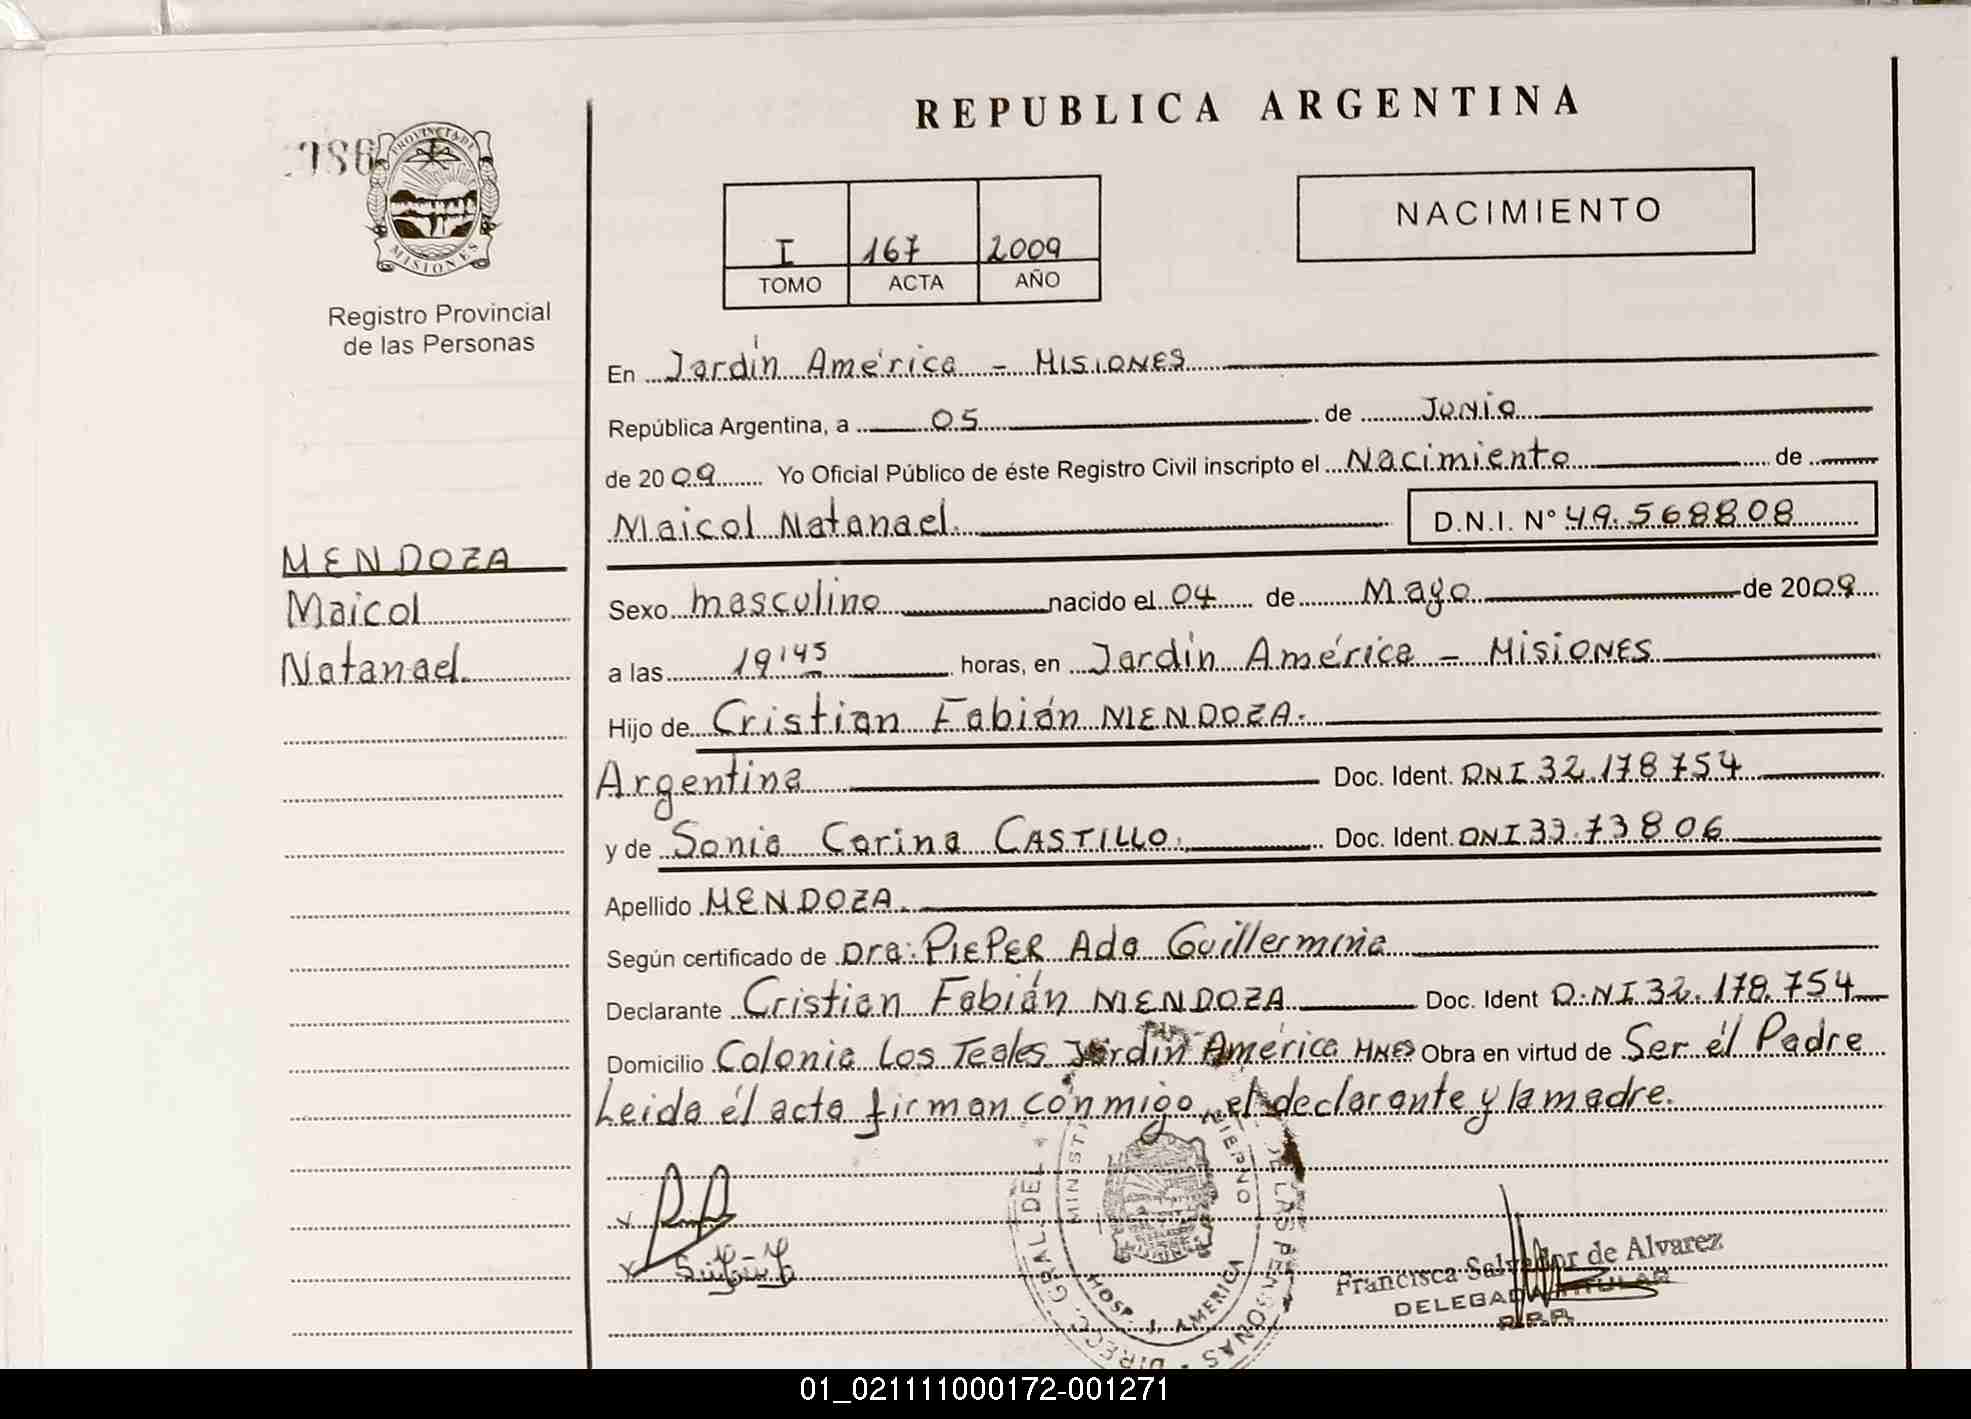 REPUBLICA ARGENTINA
PROVINCIA DE
MISIONES
Registro Provincial
de las Personas
NACIMIENTO
I 167 2009
TOMO ACTA AÑO
En Jardín América - MISIONES
República Argentina, a 05 de JUNIO
de 2009 Yo Oficial Público de éste Registro Civil inscripto el Nacimiento de
Maicol Natanael. D.N.I. N° 49.568808
MENDOZA
Maicol
Natanael.
Sexo masculino nacido el 04 de Mayo de 2009
a las 19:45 horas, en Jardín América - MISIONES
Hijo de Cristian Fabián MENDOZA.
Argentina Doc. Ident. DNI 32.178.754
y de Sonia Carina CASTILLO. Doc. Ident. DNI 33.73806
Apellido MENDOZA.
Según certificado de Dra: PIEPER Ada Guillermina
Declarante Cristian Fabián MENDOZA Doc. Ident D.NI 32.178.754
Domicilio Colonia Los Teales Jardín América MNES Obra en virtud de Ser él Padre
Leida él acta firman conmigo, el declarante y la madre.
DIRECC. GRAL. DEL DE LAS PERSONAS
HOSP. J. AMERICA
Francisca Salvador de Alvarez
DELEGADA TITULAR
R.P.P.
01_021111000172-001271